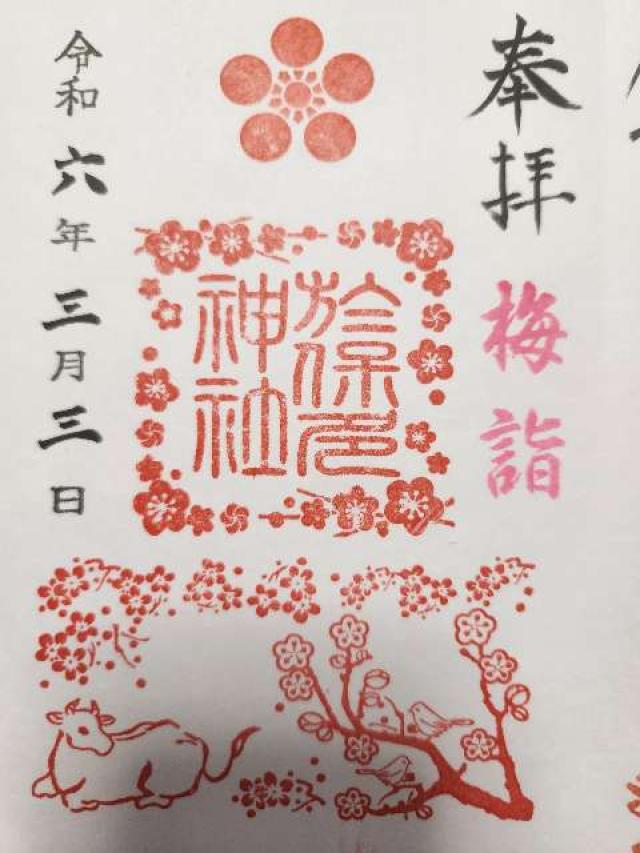 奉拝
梅詣
於保多
神社
令和六年三月三日